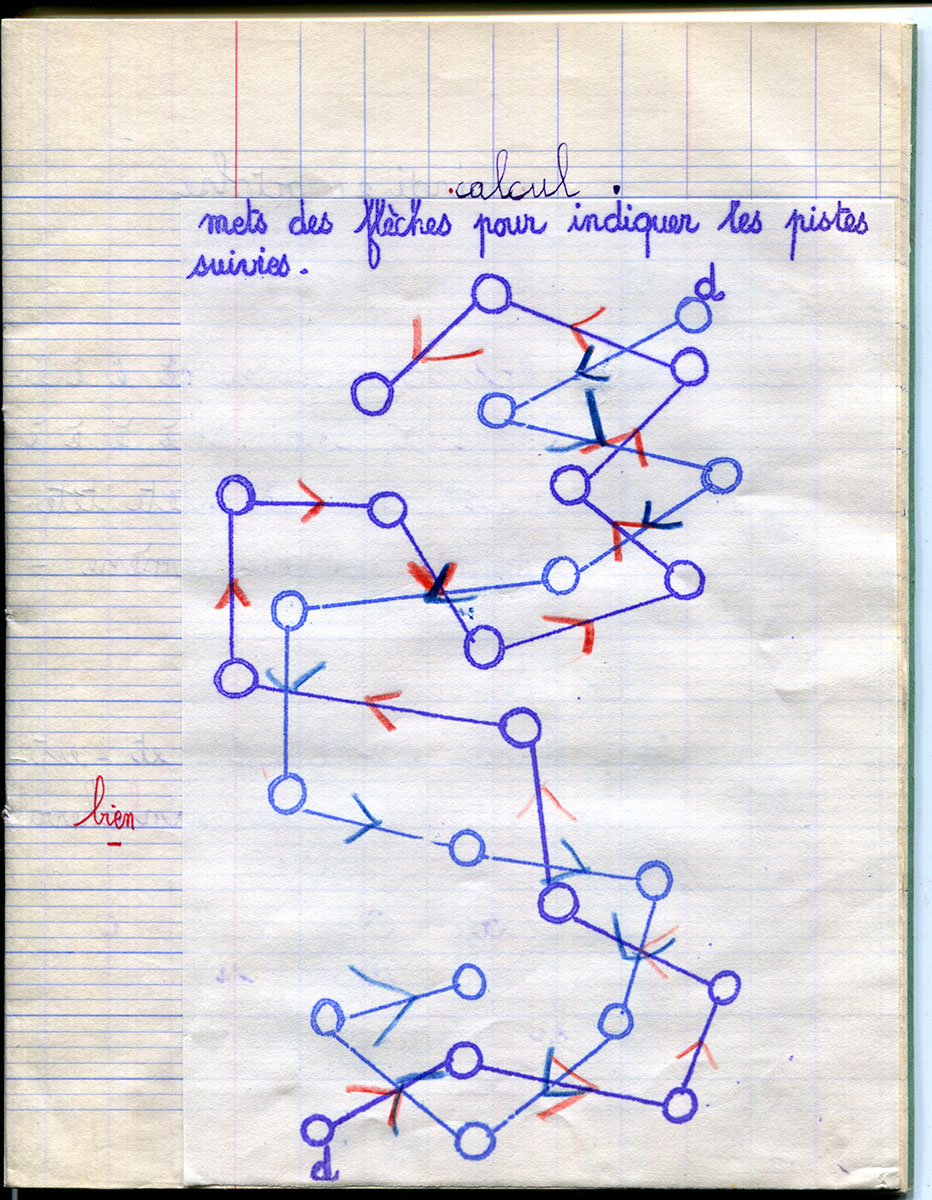 .calcul.
mets des flèches pour indiquer les pistes
suivies.
d
bien
d